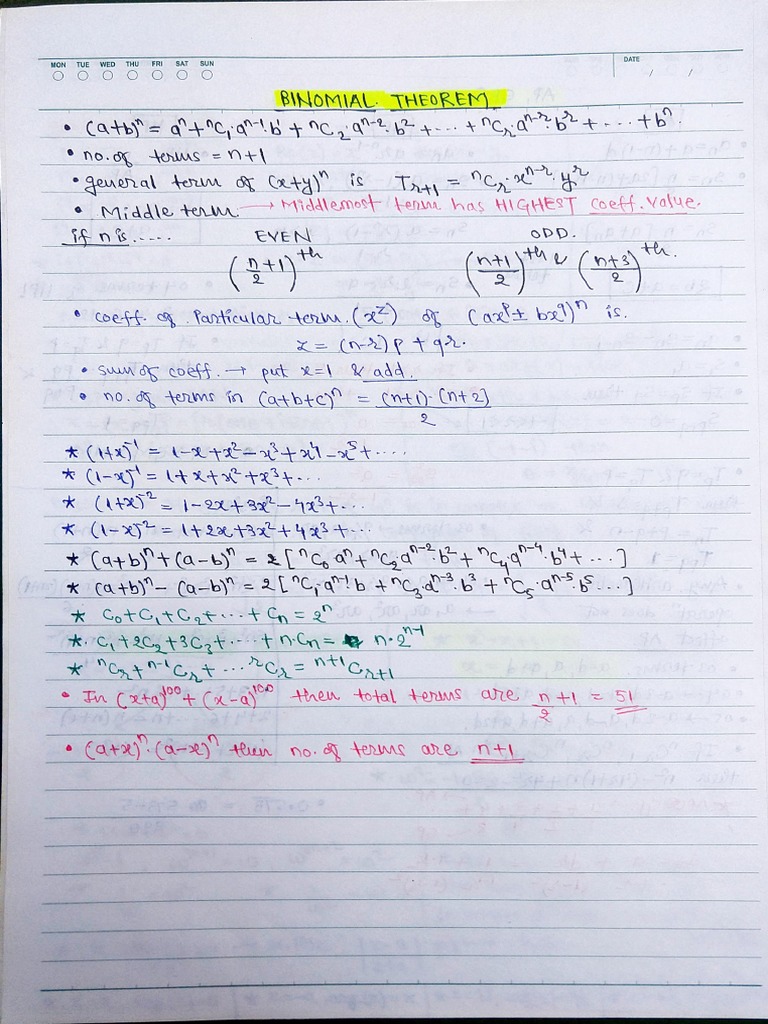 MON TUE WED THU FRI SAT SUN
DATE
BINOMIAL THEOREM.
• (a+b)ⁿ = aⁿ + ⁿC₁·aⁿ⁻¹·b¹ + ⁿC₂·aⁿ⁻²·b² + ... + ⁿCᵣ·aⁿ⁻ʳ·bʳ + ... + bⁿ.
• no. of terms = n+1
• general term of (x+y)ⁿ is Tᵣ₊₁ = ⁿCᵣ·xⁿ⁻ʳ·yʳ
• Middle term. → Middlemost term has HIGHEST coeff. value.
if n is..... EVEN ODD.
(n/2 + 1)ᵗʰ ((n+1)/2)ᵗʰ & ((n+3)/2)ᵗʰ.
• coeff. of particular term (xᶻ) of (axᵖ ± bx^q)ⁿ is.
z = (n-r)p + qr.
• sum of coeff. → put x=1 & add.
• no. of terms in (a+b+c)ⁿ = (n+1)·(n+2)/2
* (1+x)⁻¹ = 1-x+x²-x³+x⁴-x⁵+....
* (1-x)⁻¹ = 1+x+x²+x³+...
* (1+x)⁻² = 1-2x+3x²-4x³+...
* (1-x)⁻² = 1+2x+3x²+4x³+...
* (a+b)ⁿ+(a-b)ⁿ = 2[ⁿC₀aⁿ+ⁿC₂aⁿ⁻²·b²+ⁿC₄·aⁿ⁻⁴·b⁴+...]
* (a+b)ⁿ-(a-b)ⁿ = 2[ⁿC₁·aⁿ⁻¹b+ⁿC₃·aⁿ⁻³·b³+ⁿC₅·aⁿ⁻⁵·b⁵...]
* C₀+C₁+C₂+...+Cₙ = 2ⁿ
* C₁+2C₂+3C₃+...+n·Cₙ = n·2ⁿ⁻¹
* ⁿCᵣ+ⁿ⁻¹Cᵣ+...ʳCᵣ = ⁿ⁺¹Cᵣ₊₁
• In (x+a)¹⁰⁰+(x-a)¹⁰⁰ then total terms are n/2+1 = 51
• (a+x)ⁿ·(a-x)ⁿ then no. of terms are n+1